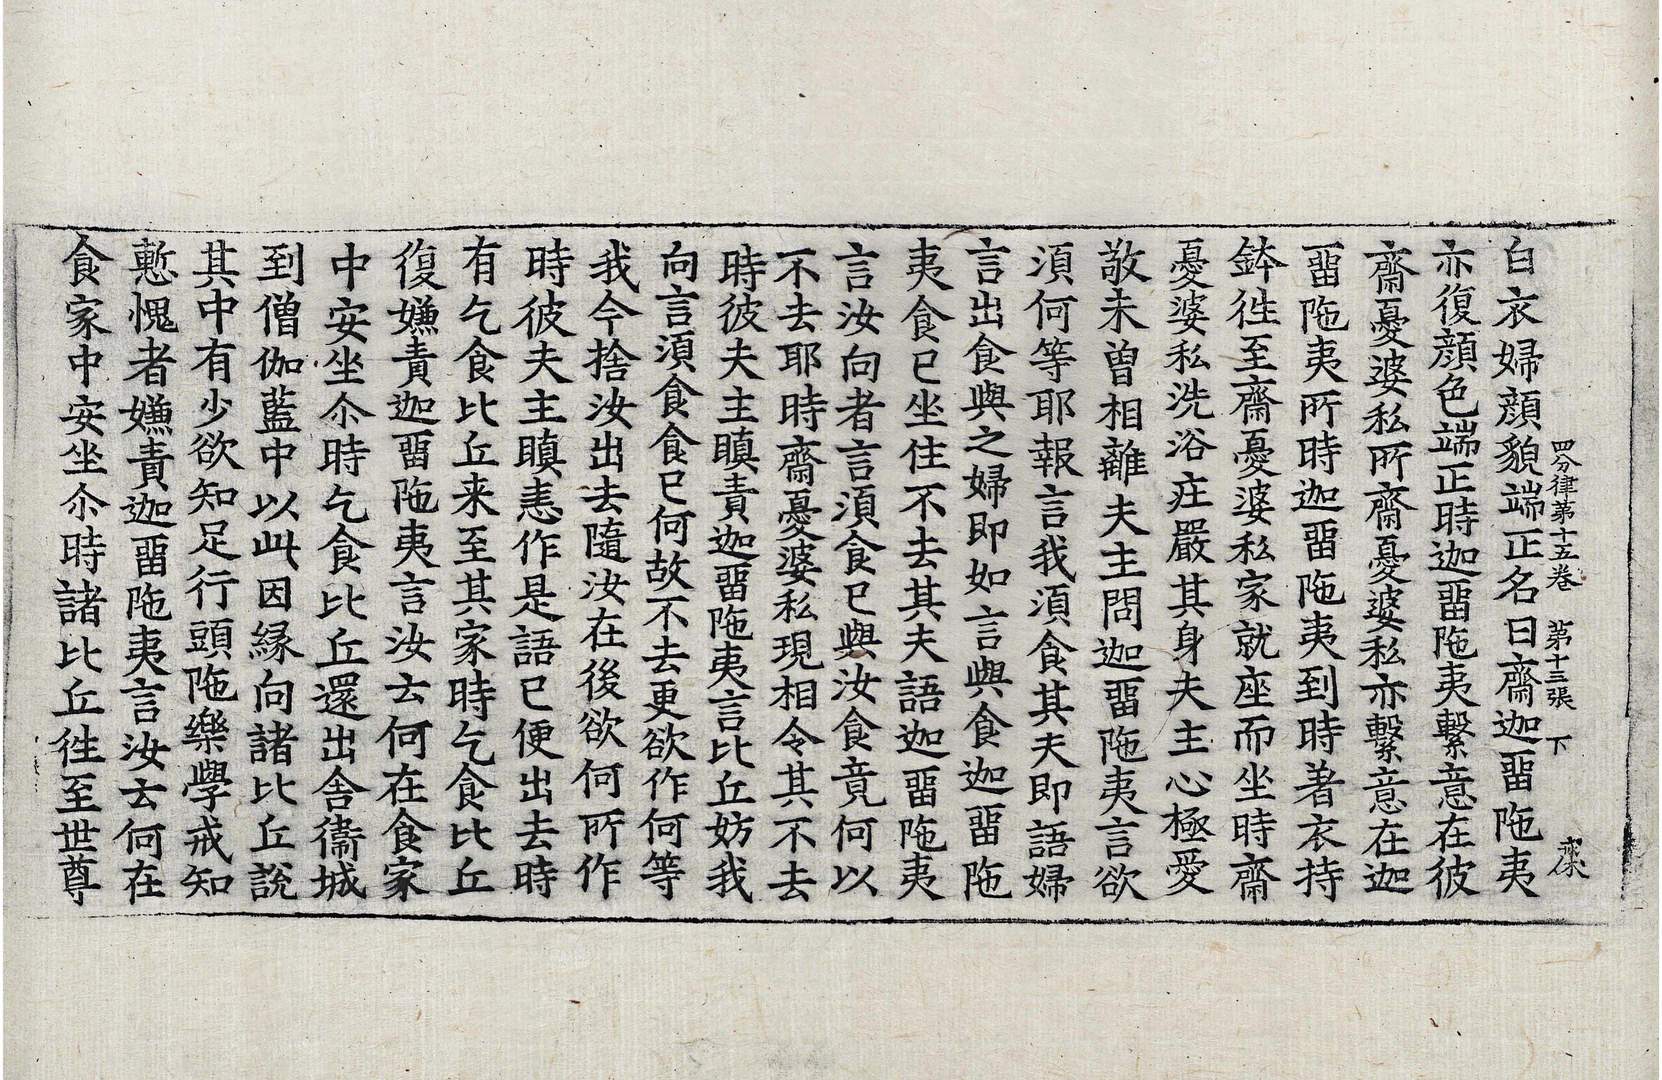 四分律第十五卷　第十三張　下
白衣婦顔貌端正名曰齋迦畱陁夷
亦復顔色端正時迦畱陁夷繫意在彼
齋憂婆私所齋憂婆私亦繫意在迦
畱陁夷所時迦畱陁夷到時著衣持
鉢徃至齋憂婆私家就座而坐時齋
憂婆私洗浴庄嚴其身夫主心極愛
敬未曾相離夫主問迦畱陁夷言欲
須何等耶報言我須食其夫即語婦
言出食與之婦即如言與食迦畱陁
夷食已坐住不去其夫語迦畱陁夷
言汝向者言須食已與汝食竟何以
不去耶時齋憂婆私現相令其不去
時彼夫主瞋責迦畱陁夷言比丘妨我
向言須食食已何故不去更欲作何等
我今捨汝出去隨汝在後欲何所作
時彼夫主瞋恚作是語已便出去時
有乞食比丘来至其家時乞食比丘
復嫌責迦畱陁夷言汝云何在食家
中安坐尒時乞食比丘還出舍衞城
到僧伽藍中以此因縁向諸比丘說
其中有少欲知足行頭陁樂學戒知
慙愧者嫌責迦畱陁夷言汝云何在
食家中安坐尒時諸比丘徃至世尊